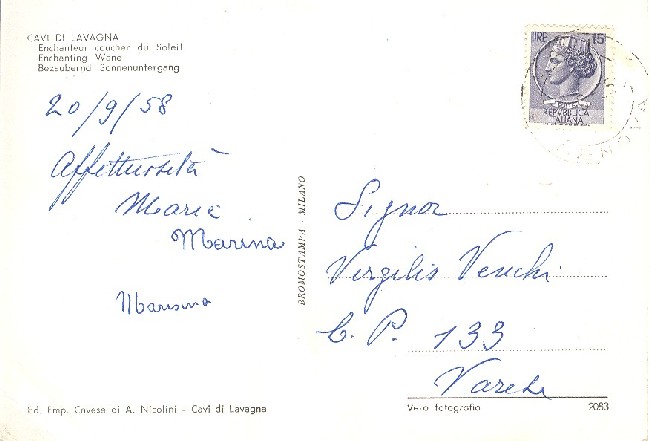 CAVI DI LAVAGNA
Enchanteur coucher du Soleil
Enchanting Wane
Bezaubernd Sonnenuntergang
20/9/58
Affettuosità
Maria
Marina
Marisma
BROMOSTAMPA - MILANO
LIRE 15
REPUBBLICA
ITALIANA
GENOVA
Signor
Virgilio Venchi
C. P. 133
Varese
Ed. Emp. Cavese di A. Nicolini - Cavi di Lavagna
Vera fotografia
2083